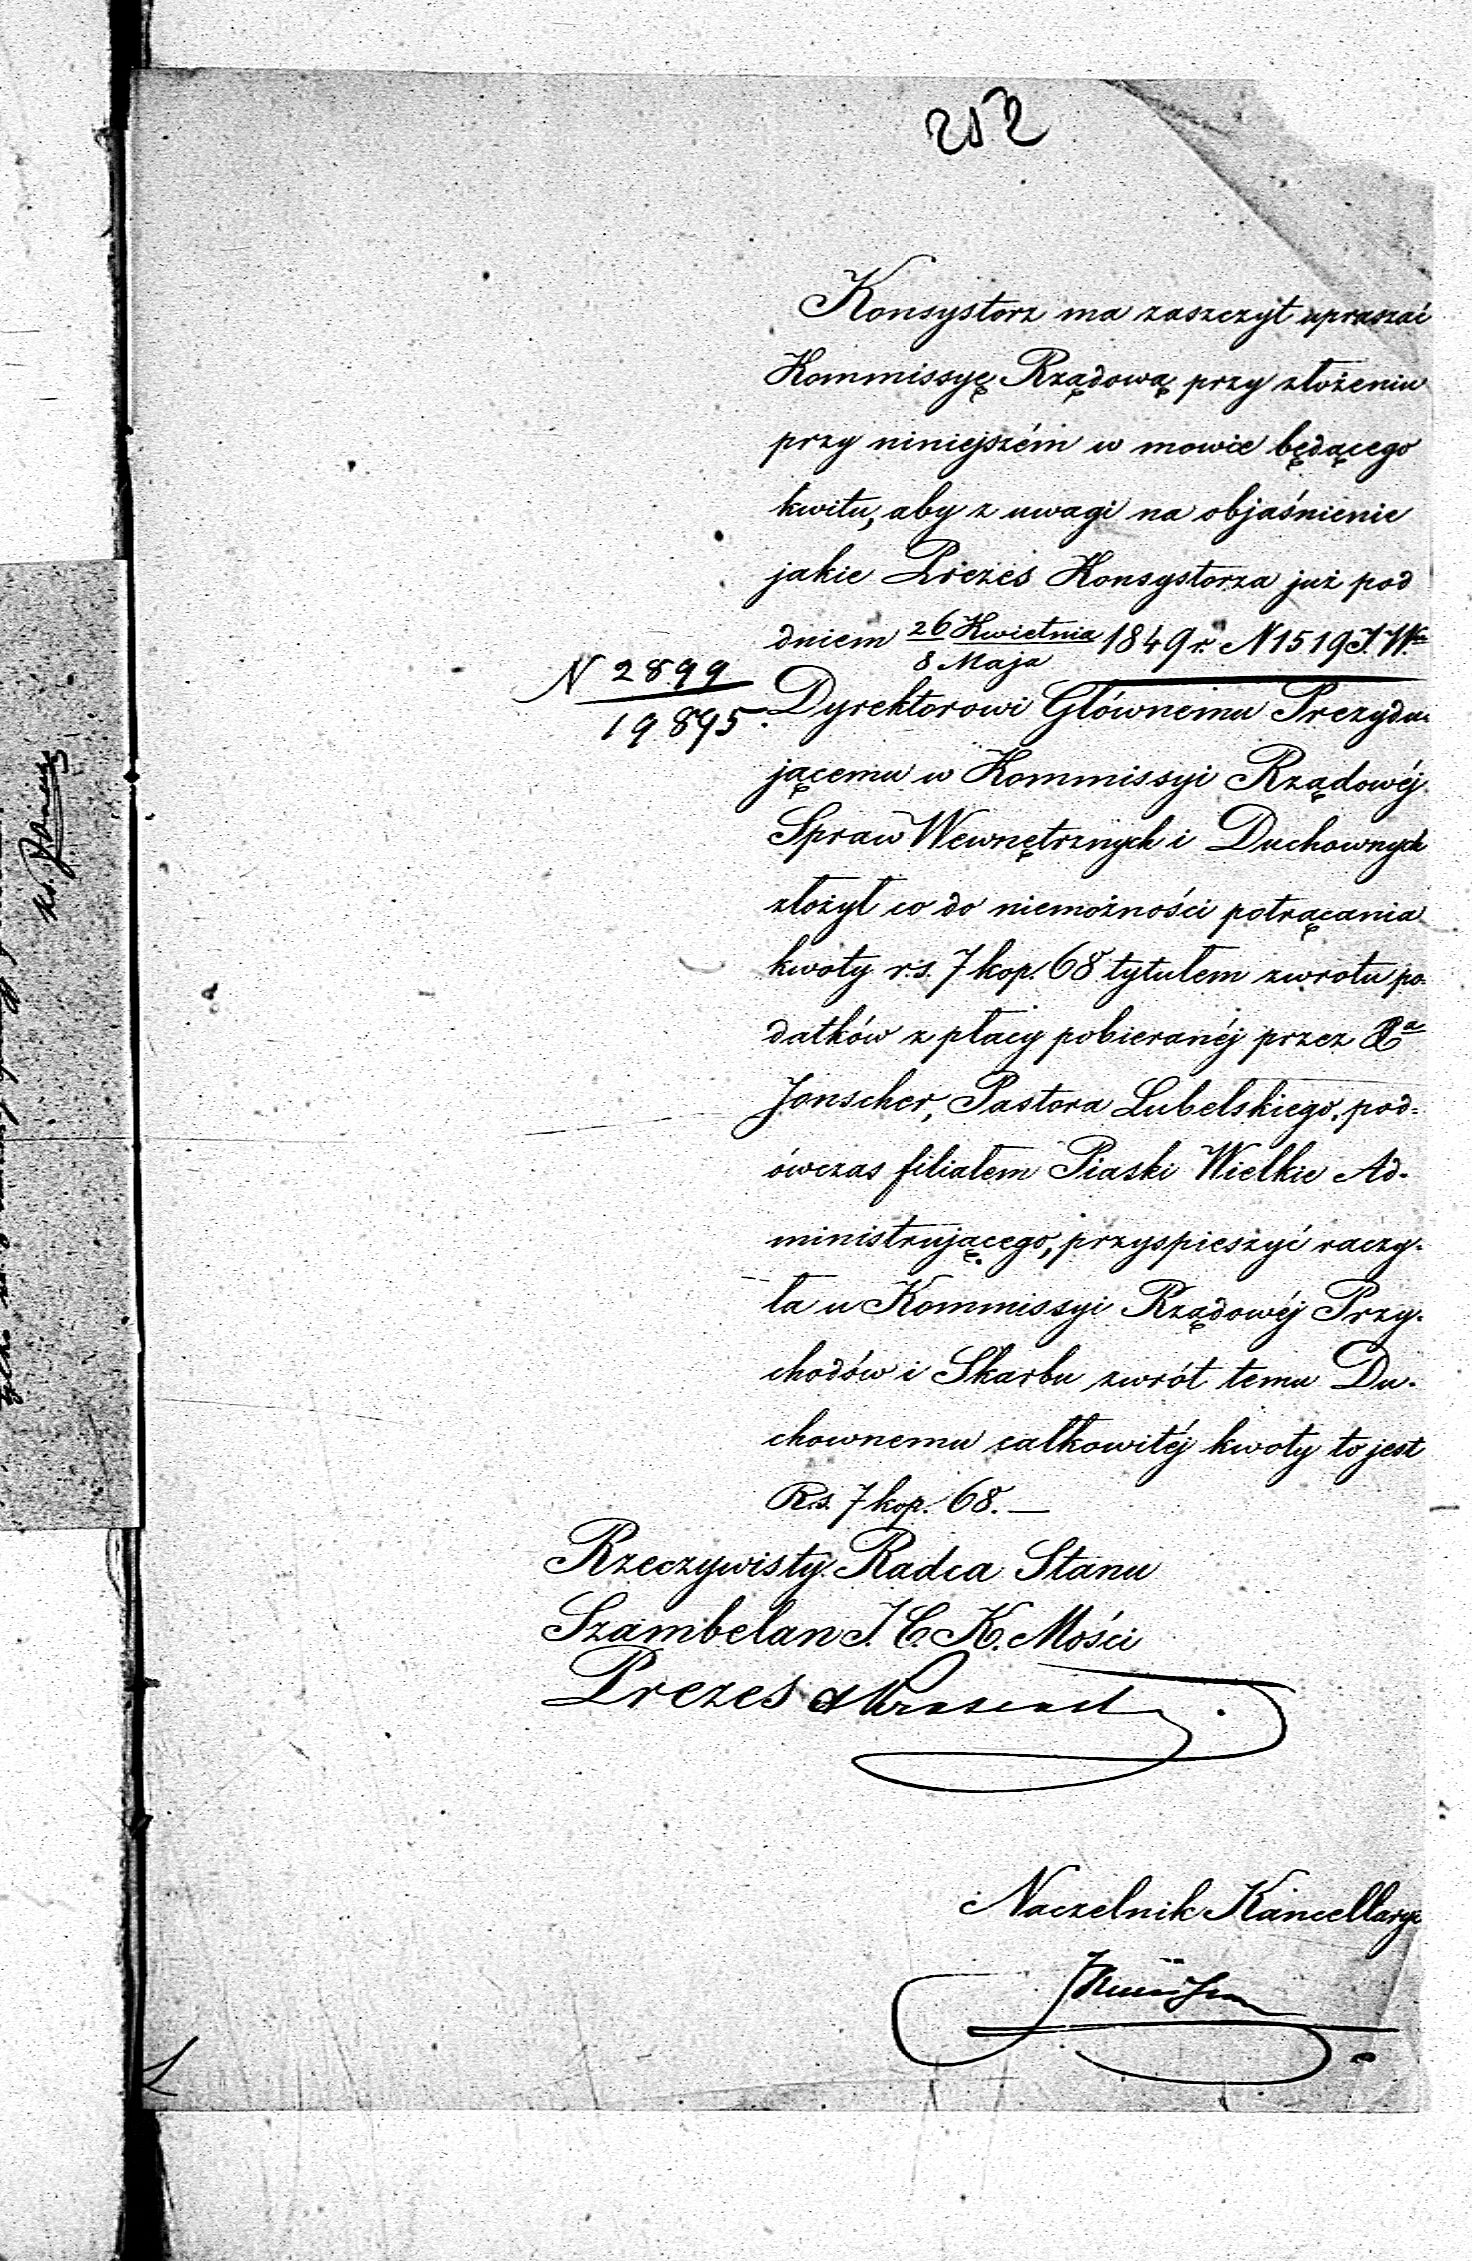 212
Konsystorz ma zaszczyt upraszać
Kommissyę Rządową przy złożeniu
przy niniejszém w mowie będącego
kwitu, aby z uwagi na objaśnienie
jakie Prezes Konsystorza już pod
dniem 26 Kwietnia / 8 Maja 1849 r. N 1519 J. W.
N 2899 / 19895.
Dyrektorowi Głównemu Prezydu-
jącemu w Kommissyi Rządowéj
Spraw Wewnętrznych i Duchownych
złożył co do niemożności potrącania
kwoty r.s. 7 kop. 68 tytułem zwrotu po-
datków z płacy pobieranéj przez Xa
Jonscher, Pastora Lubelskiego, pod=
ówczas filiałem Piaski Wielkie Ad-
ministrującego, przyspieszyć raczy-
ła u Kommissyi Rządowéj Przy-
chodów i Skarbu zwrót temu Du-
chownemu całkowitéj kwoty to jest
R.s. 7 kop. 68. —
Rzeczywisty Radca Stanu
Szambelan J. C. K. Mości
Prezes
Naczelnik Kancellaryi